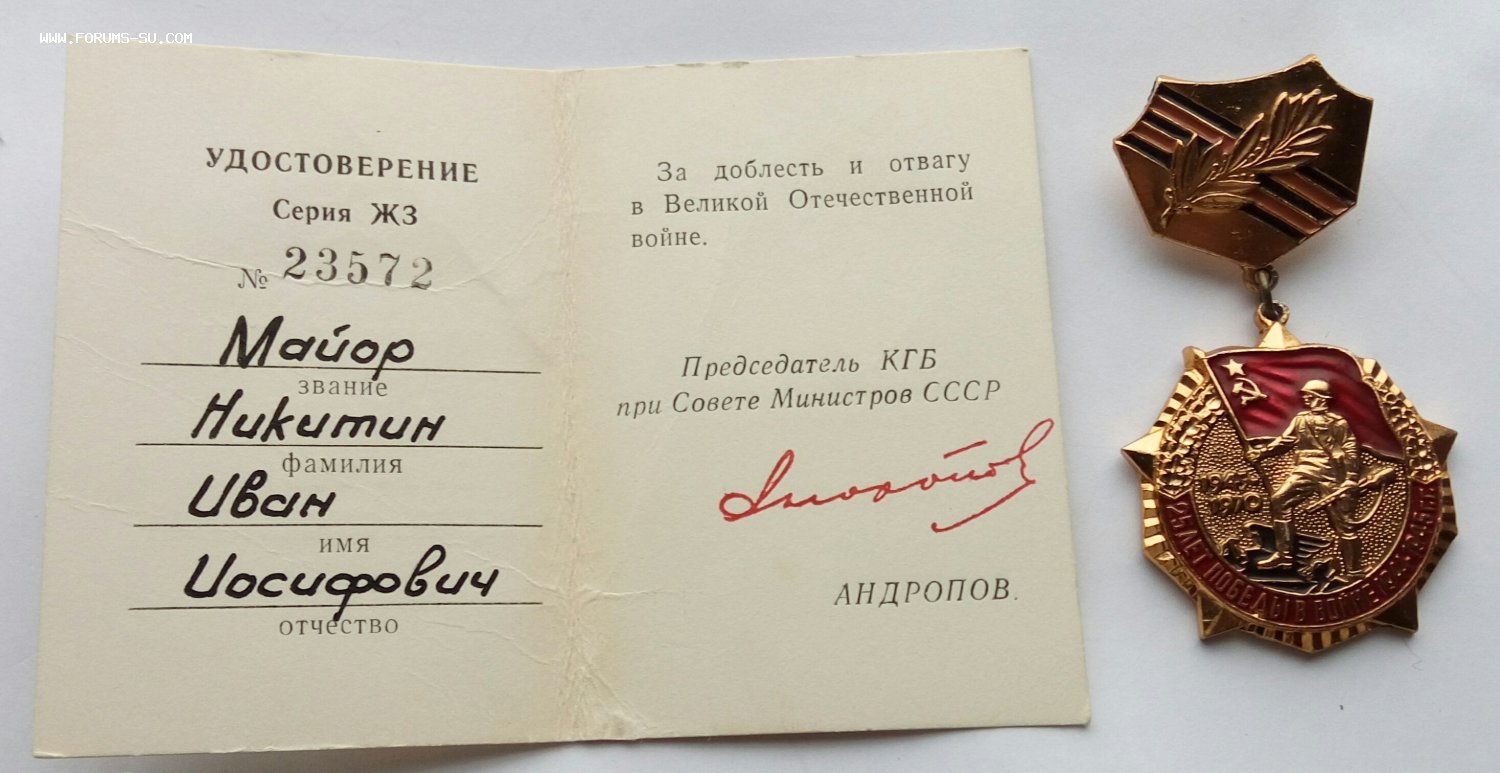 WWW.FORUMS-SU.COM
УДОСТОВЕРЕНИЕ
Серия ЖЗ
№ 23572
Майор
звание
Никитин
фамилия
Иван
имя
Иосифович
отчество
За доблесть и отвагу
в Великой Отечественной
войне.
Председатель КГБ
при Совете Министров СССР
Андропов
АНДРОПОВ.
1945
1970
25 ЛЕТ ПОБЕДЫ В ВОЙНЕ 1941-1945 гг.